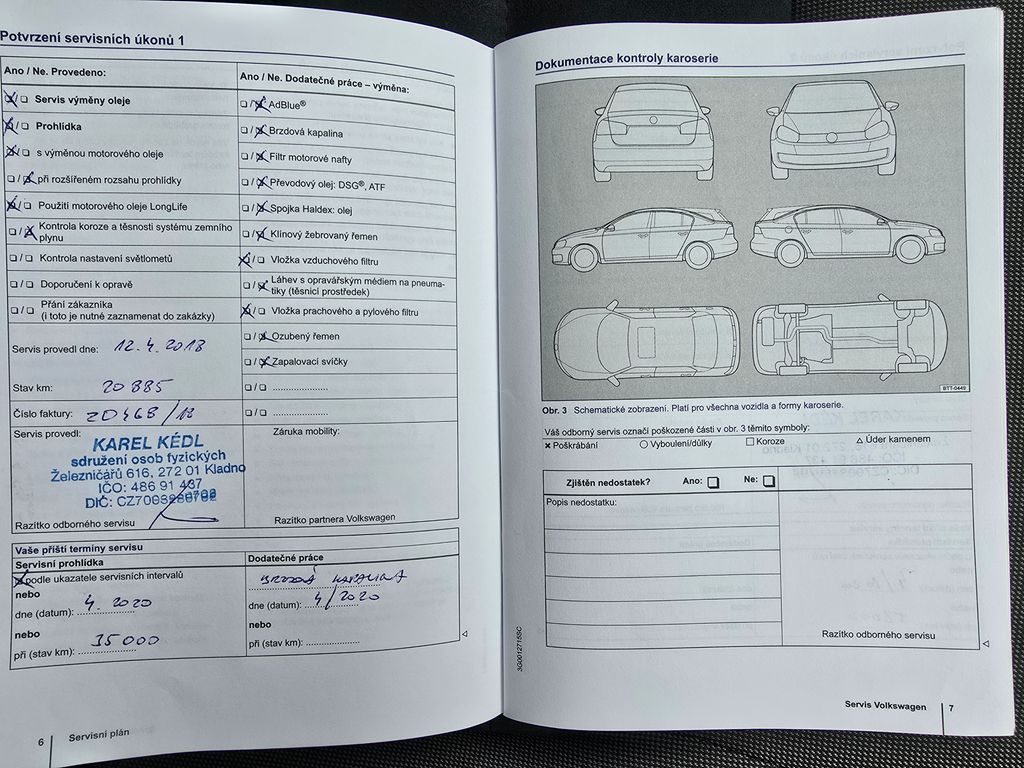 Potvrzení servisních úkonů 1
Ano / Ne. Provedeno:
Servis výměny oleje
Prohlídka
s výměnou motorového oleje
při rozšířeném rozsahu prohlídky
Použití motorového oleje LongLife
Kontrola koroze a těsnosti systému zemního
plynu
Kontrola nastavení světlometů
Doporučení k opravě
Přání zákazníka
(i toto je nutné zaznamenat do zakázky)
Servis provedl dne: 12.4.2018
Stav km: 20 885
Číslo faktury:
Servis provedl:
KAREL KÉDL
sdružení osob fyzických
Železničářů 616, 272 01 Kladno
IČO: 486 91 437
Razítko odborného servisu
Ano / Ne. Dodatečné práce – výměna:
AdBlue®
Brzdová kapalina
Filtr motorové nafty
Převodový olej: DSG®, ATF
Spojka Haldex: olej
Klínový žebrovaný řemen
Vložka vzduchového filtru
Láhev s opravářským médiem na pneuma-
tiky (těsnicí prostředek)
Vložka prachového a pylového filtru
Ozubený řemen
Zapalovací svíčky
Záruka mobility:
Razítko partnera Volkswagen
Vaše příští termíny servisu
Servisní prohlídka
podle ukazatele servisních intervalů
nebo
dne (datum): 4. 2020
nebo
při (stav km): 35 000
Dodatečné práce
BRZDOVÁ KAPALINA
dne (datum): 4/2020
nebo
při (stav km):
6 Servisní plán
Dokumentace kontroly karoserie
BTT-0449
Obr. 3 Schematické zobrazení. Platí pro všechna vozidla a formy karoserie.
Váš odborný servis označí poškozené části v obr. 3 těmito symboly:
× Poškrábání ○ Vyboulení/důlky □ Koroze △ Úder kamenem
Zjištěn nedostatek? Ano: □ Ne: □
Popis nedostatku:
Razítko odborného servisu
3G0012715SC
Servis Volkswagen 7